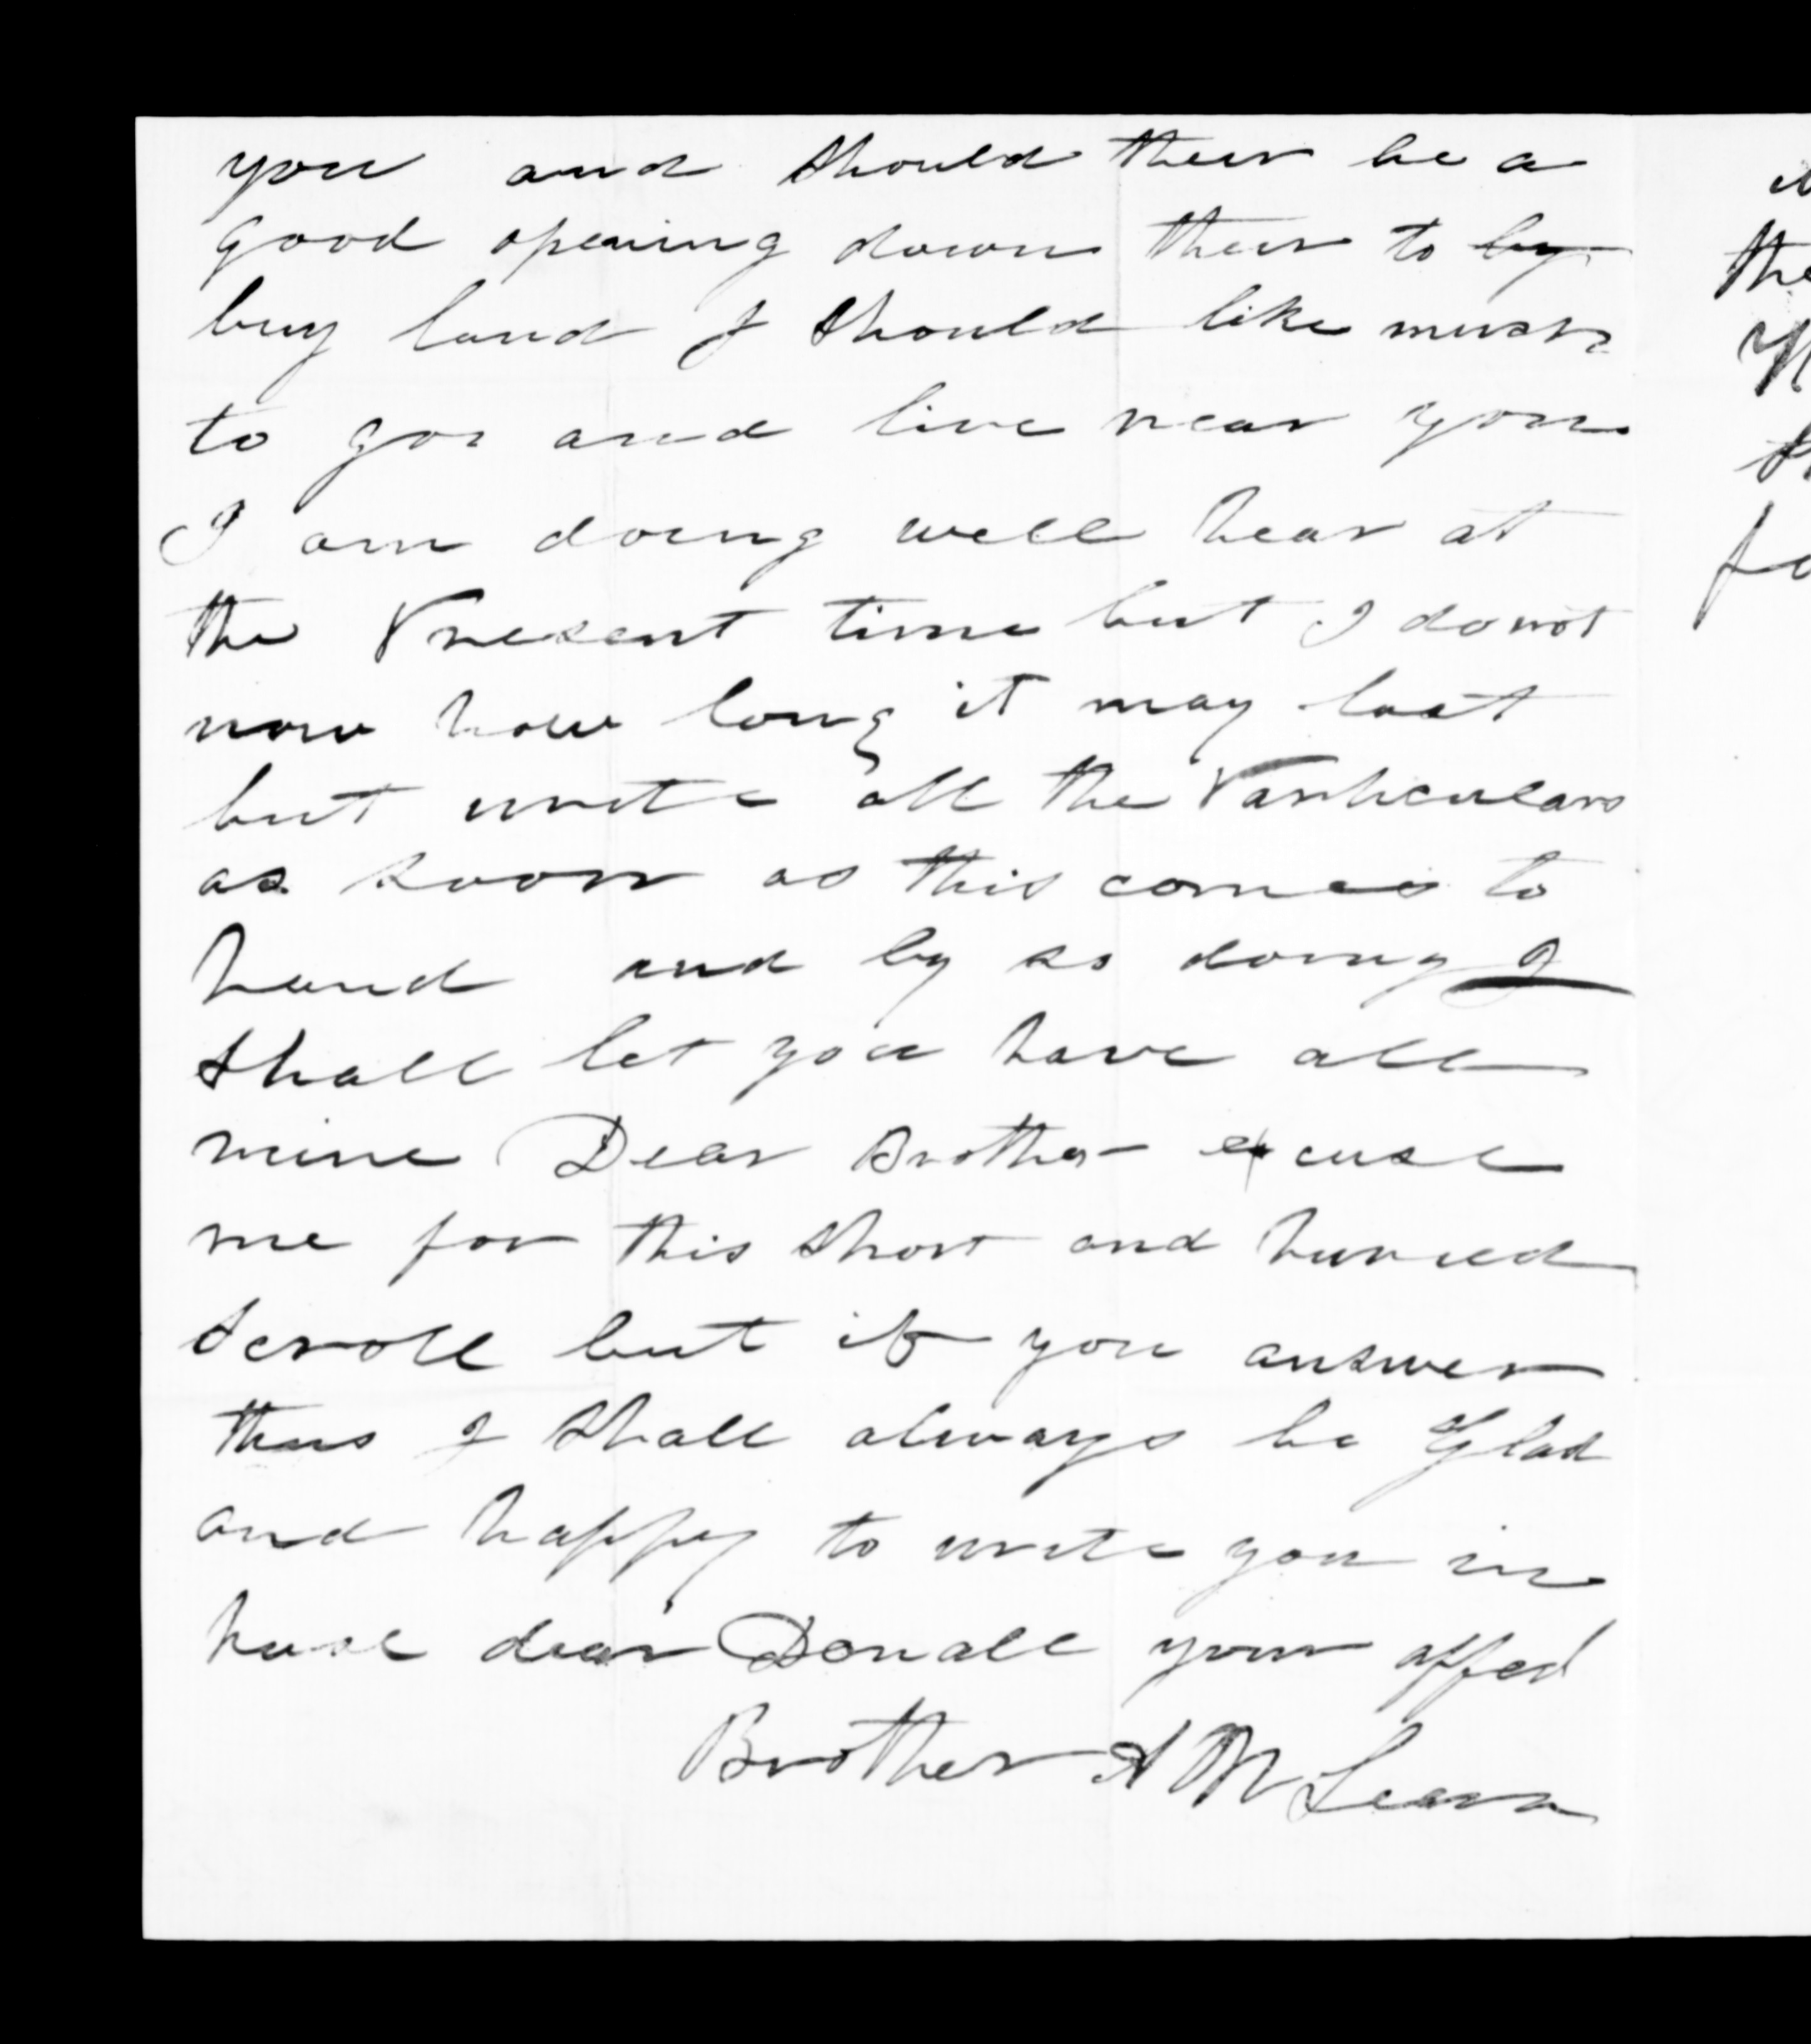 you and should their be a
good opening down their to by
buy land I should like much
to goe and live near you
I am doing well hear at
the Present time but I do not
now how long it may last
but write all the Particulars
as soon as this comes to
hand and by so doing I
shall let you have all
mine Dear Brother excuse
me for this short and hurried
scroll but if you answer
this I shall always be Glad
and happy to write you in
hase dear Donall your affed
Brother A McLean